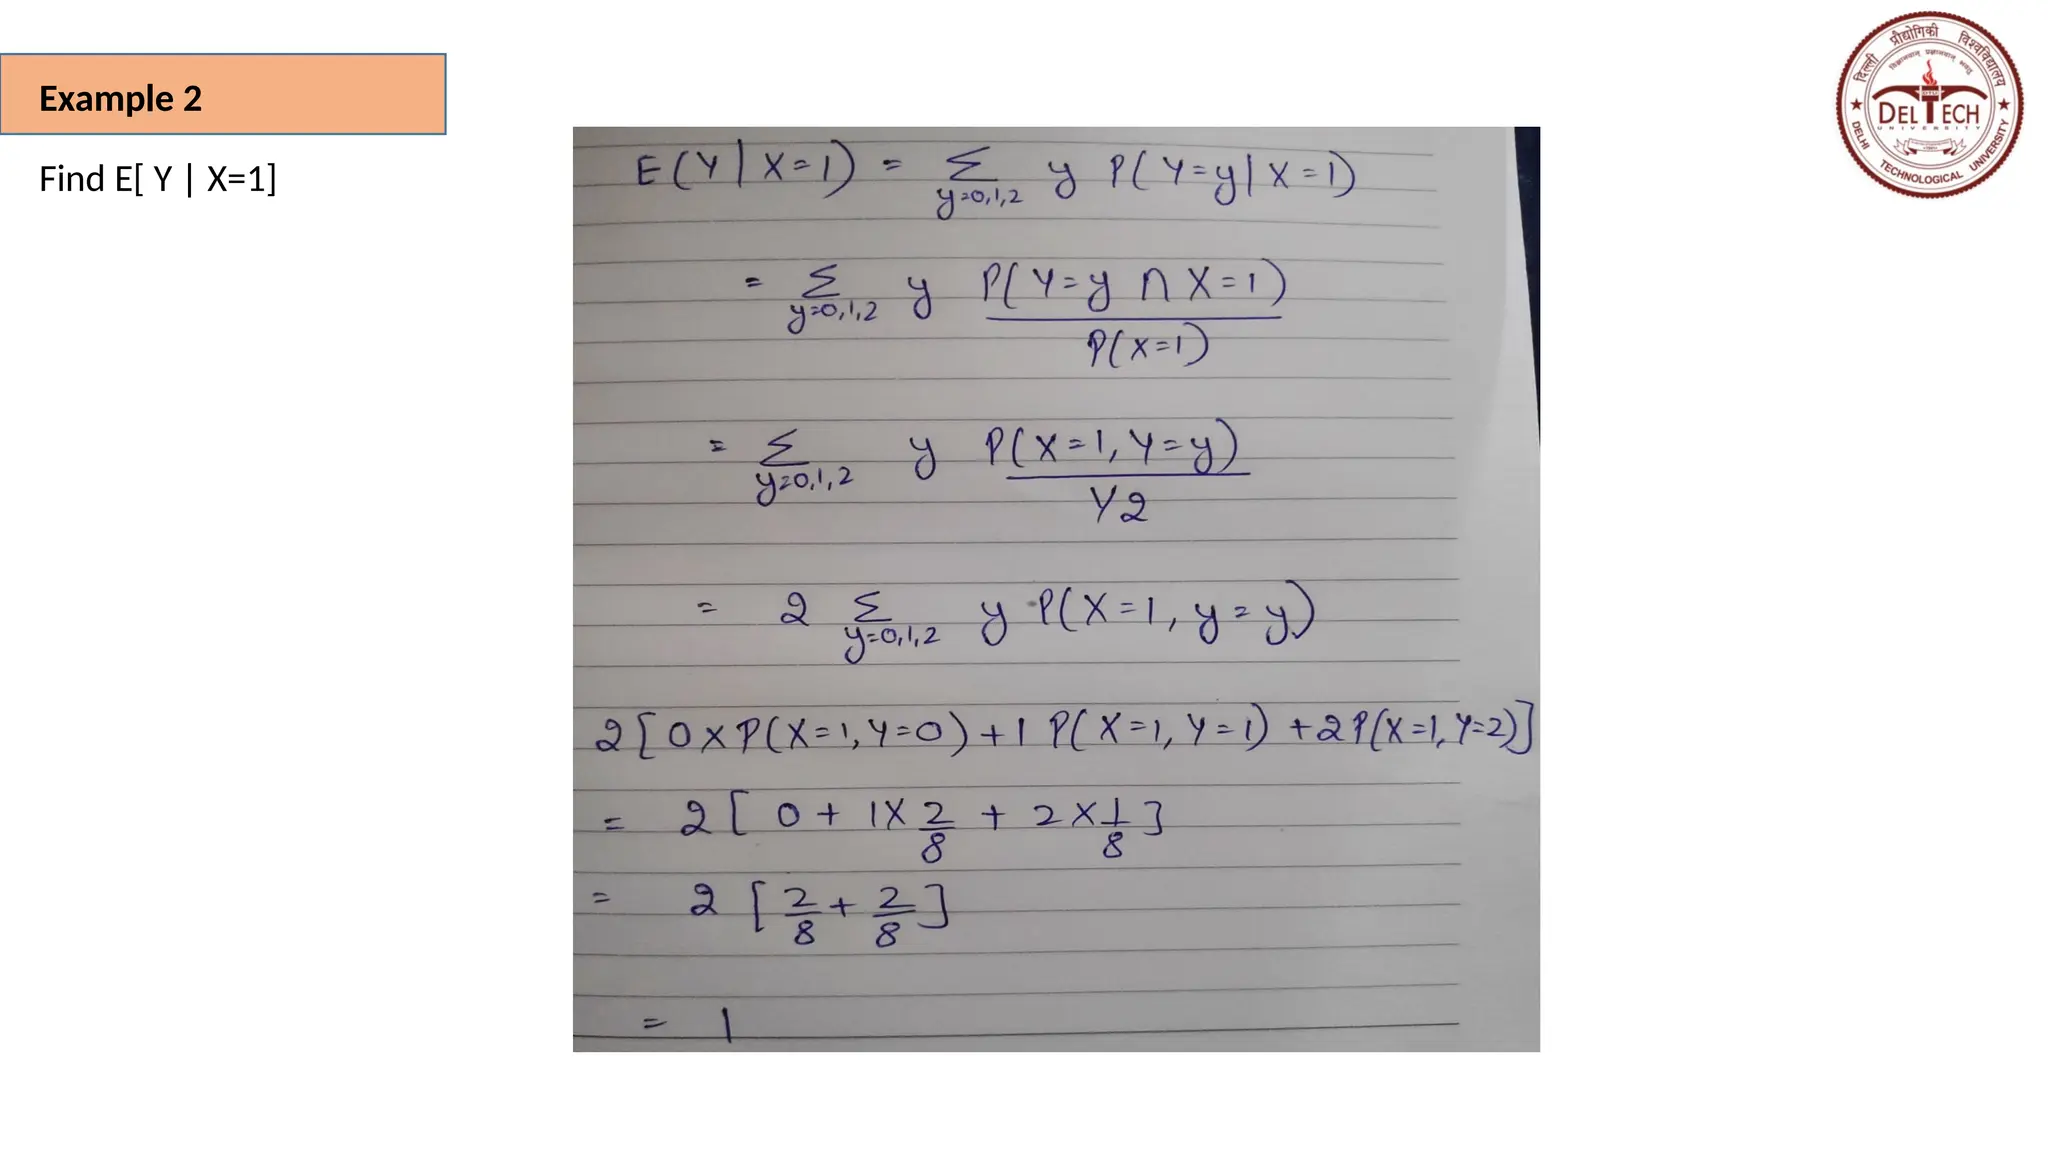 Example 2
Find E[ Y | X=1]
E(Y | X=1) = Σ y P(Y=y | X=1)
y=0,1,2
= Σ y P(Y=y ∩ X=1)
y=0,1,2
P(X=1)
= Σ y P(X=1, Y=y)
y=0,1,2
1/2
= 2 Σ y P(X=1, y=y)
y=0,1,2
2[0×P(X=1,Y=0)+1 P(X=1, Y=1) +2P(X=1,Y=2)]
= 2[ 0 + 1×2/8 + 2×1/8]
= 2 [2/8 + 2/8]
= 1
दिल्ली प्रौद्योगिकी विश्वविद्यालय
DELTECH
UNIVERSITY
DELHI TECHNOLOGICAL UNIVERSITY